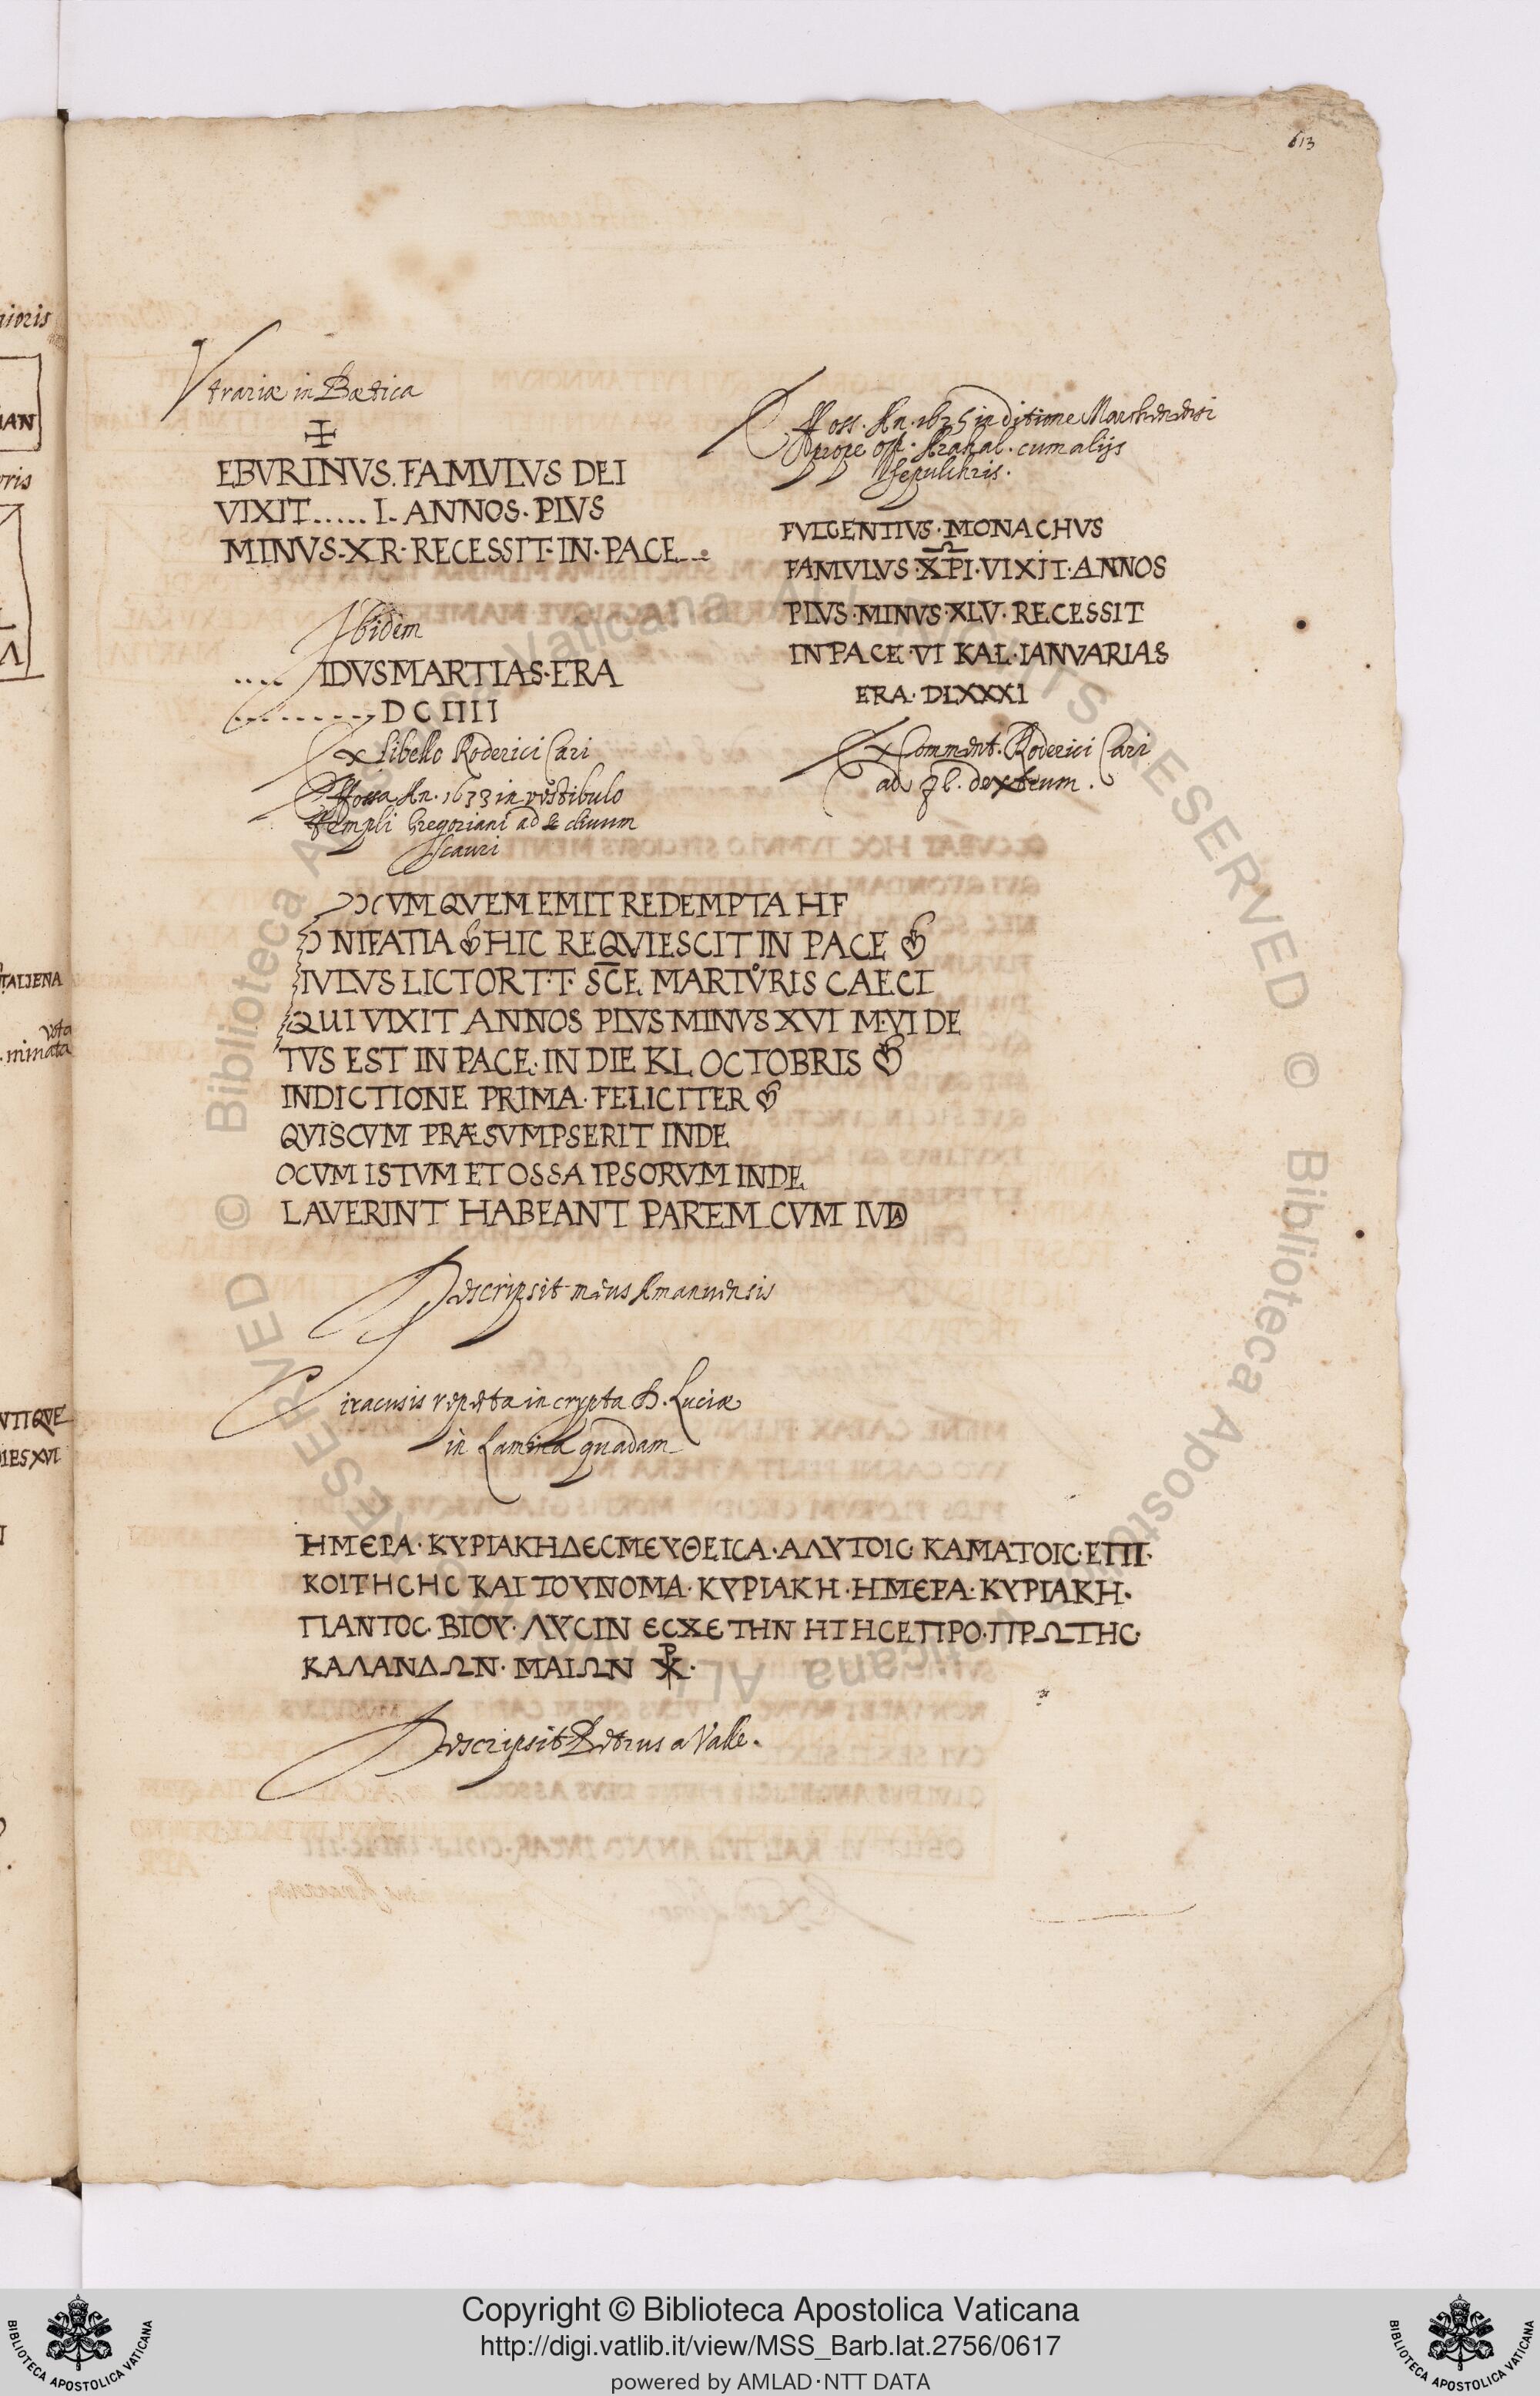 613
Vtrariæ in Bœtica
EBVRINVS. FAMVLVS DEI
VIXIT..... I. ANNOS. PLVS
MINVS. XR. RECESSIT. IN. PACE
Ibidem
.... IDVS MARTIAS. ERA
......... DCIIII
Ex libello Roderici Cari
Effossa An. 1633 in vestibulo
Templi Gregoriani ad cliuum
Scauri
Effoss. An. 1625 in ditione
prope cum alijs
sepulchris.
FVLGENTIVS. MONACHVS
FAMVLVS. XPI. VIXIT. ANNOS
PLVS. MINVS. XLV. RECESSIT
IN PACE. VI KAL. IANVARIAS
ERA. DLXXXI
Ex Comment. Roderici Cari
ad dextrum.
OCVM QVEM EMIT REDEMPTA HF
NIFATIA HIC REQVIESCIT IN PACE
IVLVS LICTOR T.T. SCE MARTVRIS CAECI
QUI VIXIT ANNOS PLVS MINVS XVI M.VI DE
TVS EST IN PACE. IN DIE KL OCTOBRIS
INDICTIONE PRIMA. FELICITER
QVISCVM PRÆSVMPSERIT INDE
OCVM ISTVM ET OSSA IPSORVM INDE
LAVERINT HABEANT PAREM CVM IVDA
Descripsit meus Amanuensis
Siracusis reperta in crypta S. Luciæ
in Lamina quadam
ΗΜΕΡΑ. ΚΥΡΙΑΚΗ ΔΕϹΜΕΥΘΕΙϹΑ. ΑΛΥΤΟΙϹ ΚΑΜΑΤΟΙϹ. ΕΠΙ.
ΚΟΙΤΗϹΗϹ ΚΑΙ ΤΟΥΝΟΜΑ. ΚΥΡΙΑΚΗ. ΗΜΕΡΑ. ΚΥΡΙΑΚΗ.
ΠΑΝΤΟϹ. ΒΙΟΥ. ΛΥϹΙΝ ΕϹΧΕ ΤΗΝ ΗΤΗϹΕ ΠΡΟ. ΠΡΩΤΗϹ.
ΚΑΛΑΝΔΩΝ. ΜΑΙΩΝ ☧.
Descripsit Petrus a Valle.
Copyright © Biblioteca Apostolica Vaticana
http://digi.vatlib.it/view/MSS_Barb.lat.2756/0617
powered by AMLAD·NTT DATA